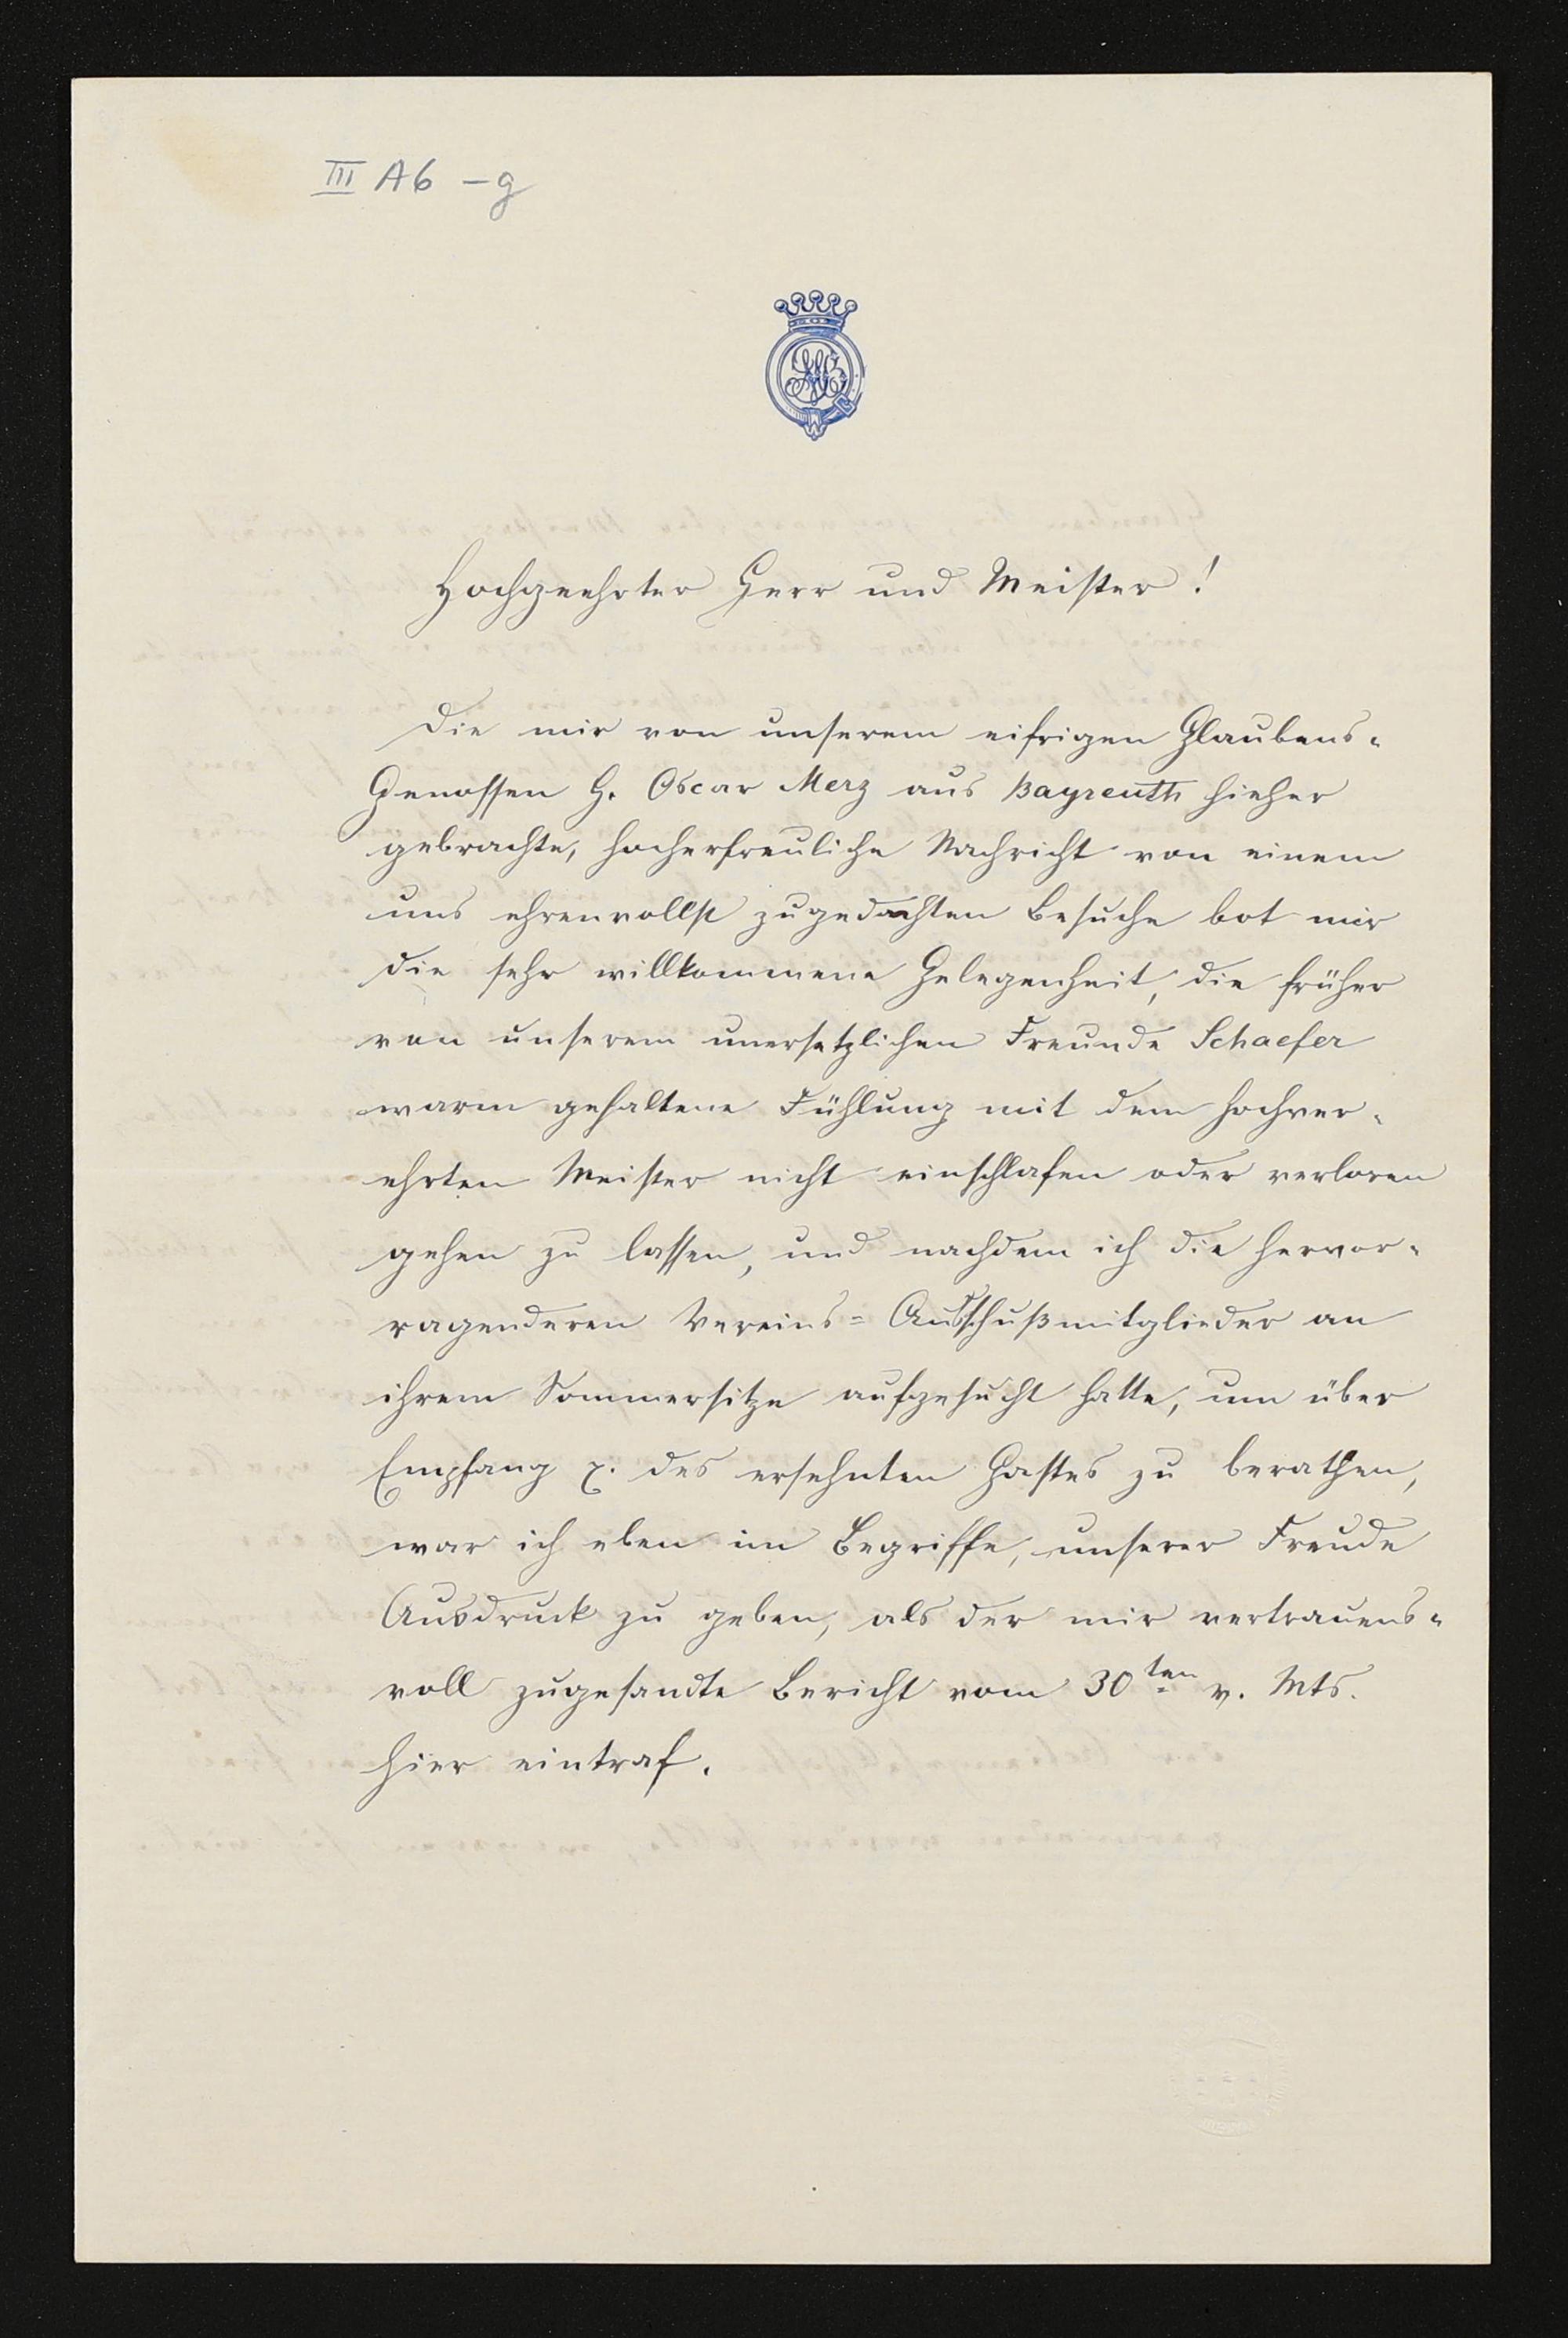 III A6 - g
Hochgeehrter Herr und Meister!
Die mir von unserem eifrigen Glaubens-
Genossen H. Oscar Merz aus Bayreuth hieher
gebrachte, hocherfreuliche Nachricht von einem
uns ehrenvollst zugedachten Besuche bot mir
die sehr willkommene Gelegenheit, die früher
von unserem unersetzlichen Freunde Schaefer
warm gehaltene Fühlung mit dem hochver-
ehrten Meister nicht einschlafen oder verloren
gehen zu lassen, und nachdem ich die hervor-
ragenderen Vereins-Ausschußmitglieder an
ihrem Sommersitze aufgesucht hatte, um über
Empfang p. des ersehnten Gastes zu berathen,
war ich eben im Begriffe, unserer Freude
Ausdruck zu geben, als der mir vertrauens-
voll zugesandte Bericht vom 30ten v. Mts.
hier eintraf.